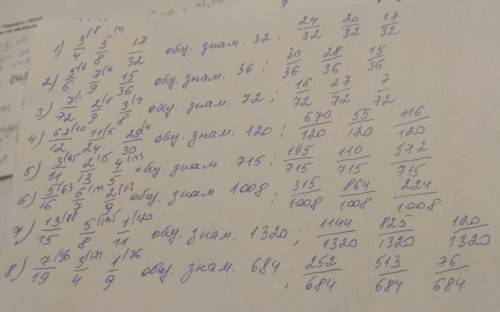 1) 3/4 (8 5/8 (4 17/32 общ. знам. 32 ; 24/32 20/32 17/32
2) 5/6 (6 7/9 (4 15/36 общ. знам. 36 ; 30/36 28/36 15/36
3) 7/72 2/9 (8 3/8 (9 общ. знам. 72 ; 16/72 27/72 7/72
4) 67/12 (10 11/24 (5 29/30 (4 общ. знам. 120 : 670/120 55/120 116/120
5) 3/11 (65 2/13 (55 4/5 (143 общ. знам 715 : 195/715 110/715 572/715
6) 5/16 (63 6/7 (144 2/9 (112 общ. знам 1008 : 315/1008 864/1008 224/1008
7) 13/15 (88 5/8 (165 1/11 (120 общ. знам. 1320 ; 1144/1320 825/1320 120/1320
8) 7/19 (36 3/4 (171 1/9 (76 общ. знам. 684 ; 252/684 513/684 76/684